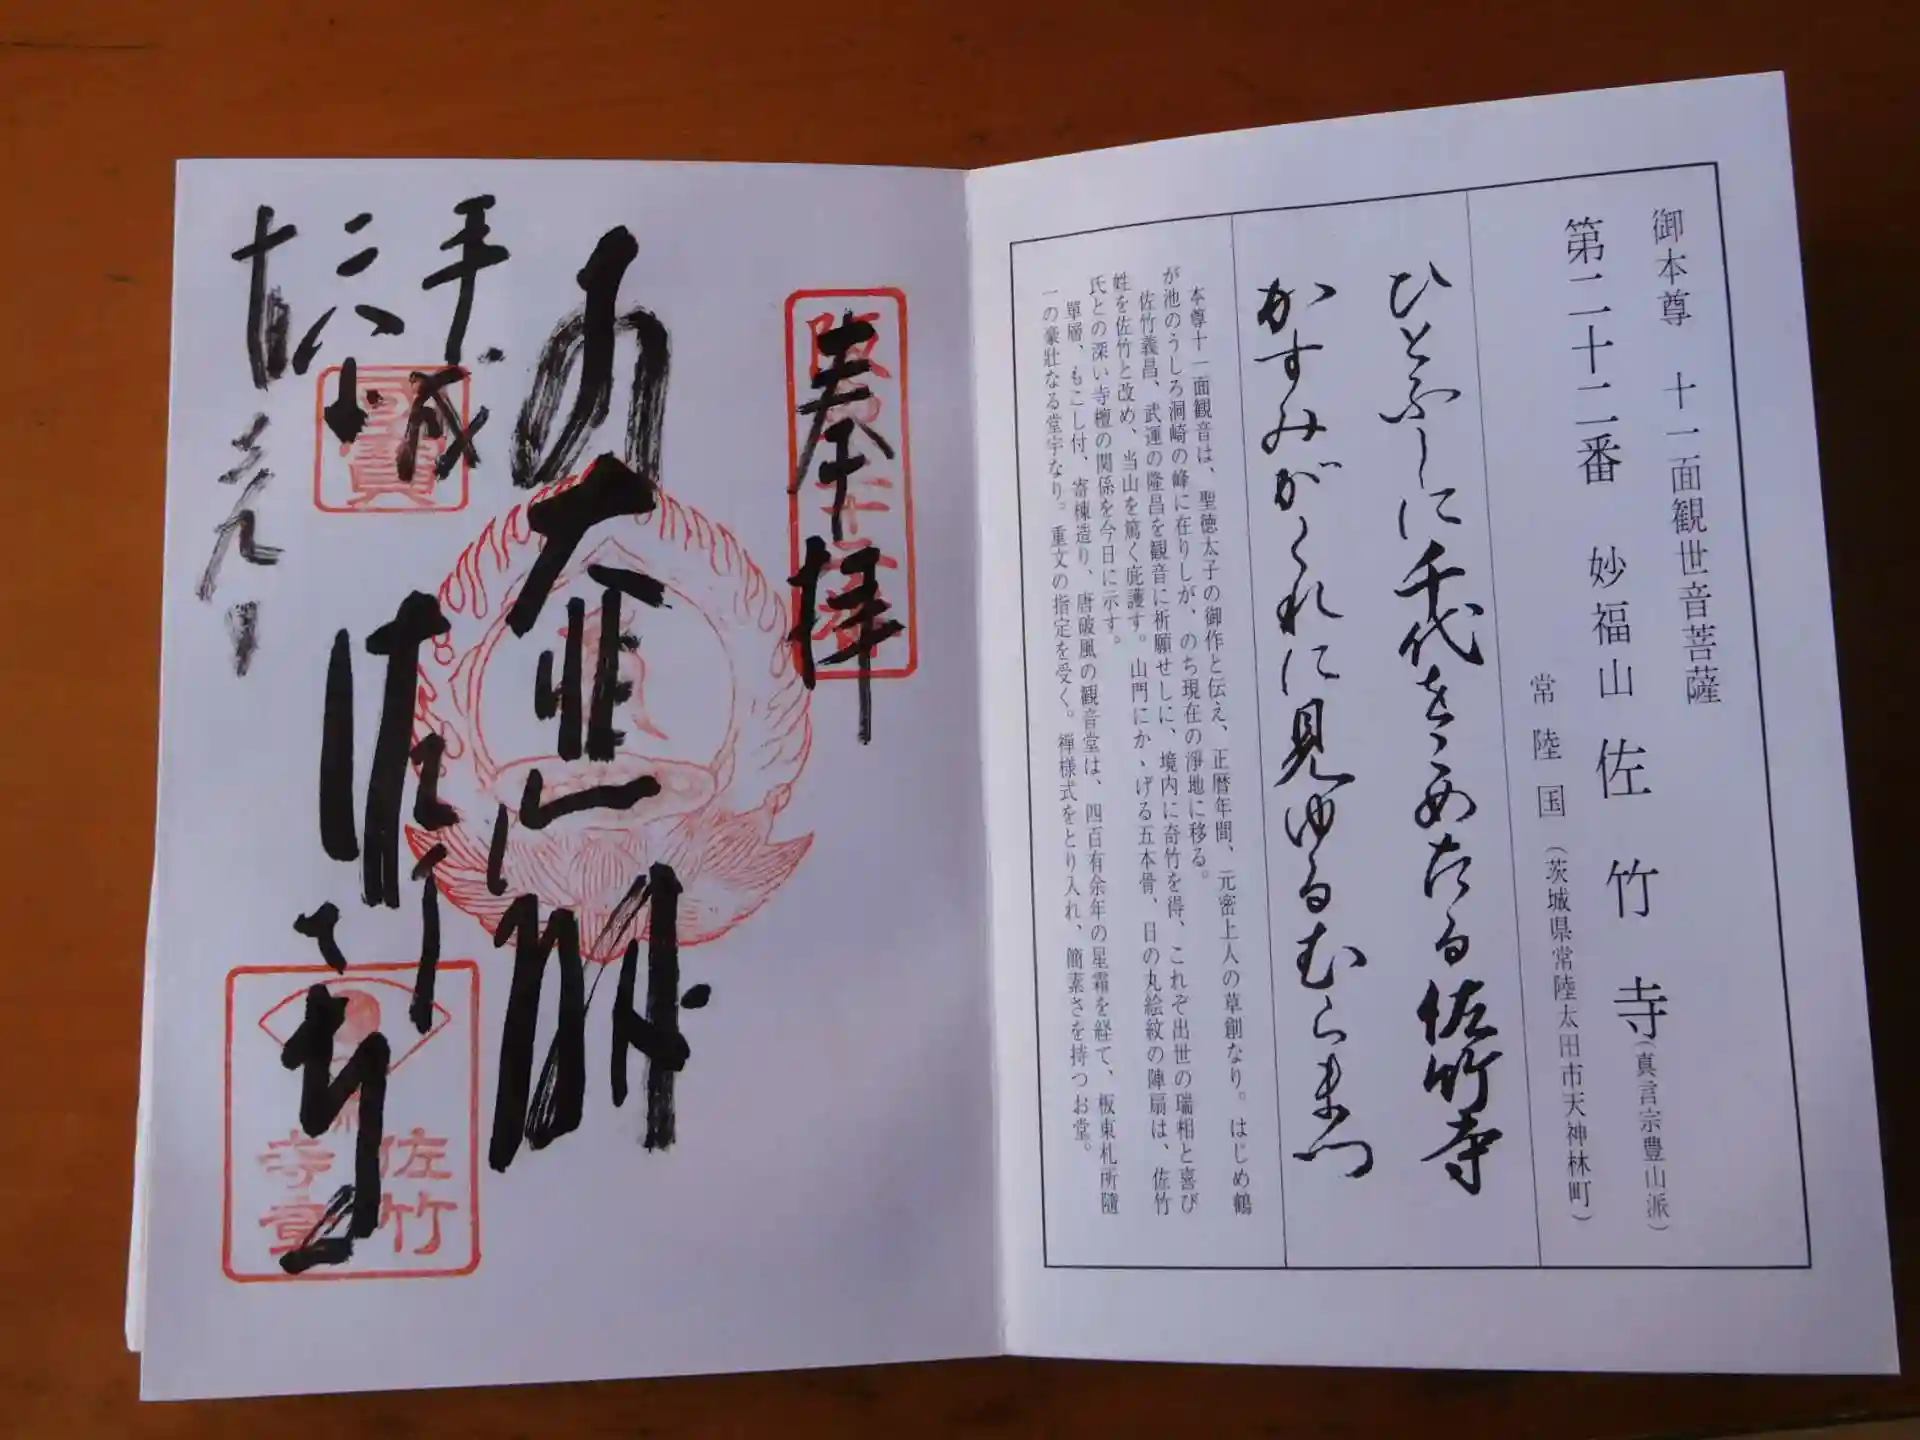 御本尊 十一面観世音菩薩
第二十二番 妙福山 佐竹寺(真言宗豊山派)
常陸国(茨城県常陸太田市天神林町)
ひとふしに千代をこめたる佐竹寺
かすみがくれに見ゆるむらまつ
本尊十一面観音は、聖徳太子の御作と伝え、正暦年間、元密上人の草創なり。はじめ鶴
が池のうしろ洞崎の峰に在りしが、のち現在の淨地に移る。
佐竹義昌、武運の隆昌を観音に祈願せしに、境内に奇竹を得、これぞ出世の瑞相と喜び
姓を佐竹と改め、当山を篤く庇護す。山門にかゝげる五本骨、日の丸絵紋の陣扇は、佐竹
氏との深い寺檀の関係を今日に示す。
單層、もこし付、寄棟造り、唐破風の観音堂は、四百有余年の星霜を経て、板東札所隨
一の豪壯なる堂宇なり。重文の指定を受く。禅様式をとり入れ、簡素さを持つお堂。
奉拝
大悲
平成
佐竹寺
佐竹
寺章